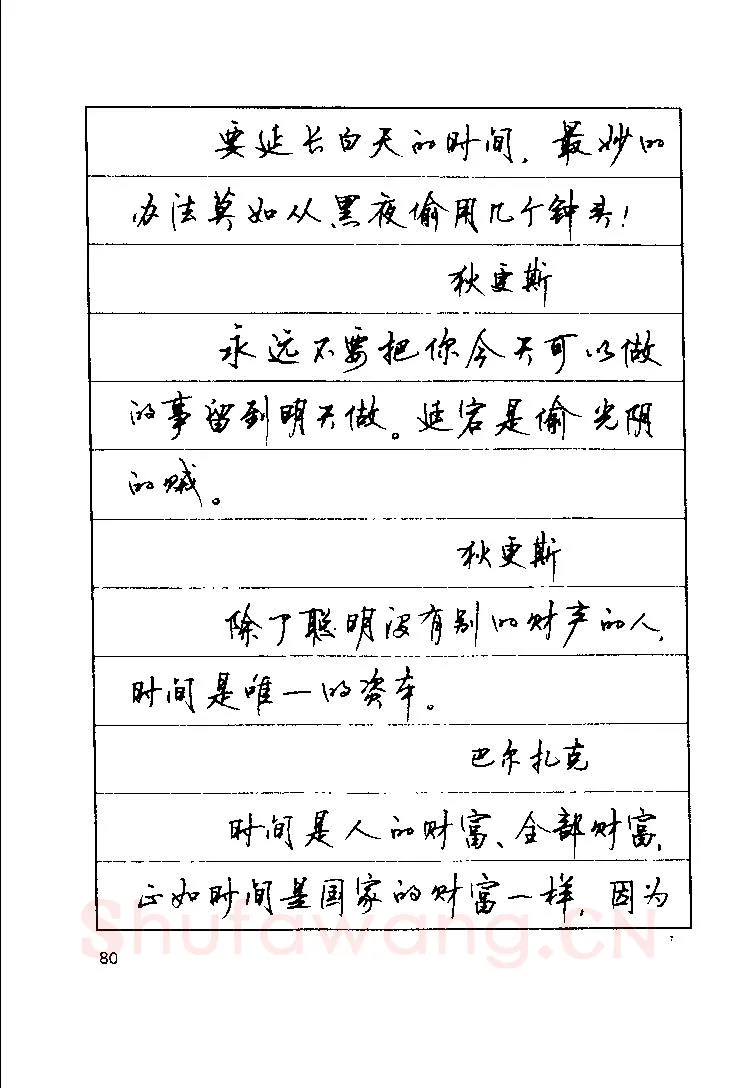 要延长白天的时间，最妙的
办法莫如从黑夜偷用几个钟头！
狄更斯
永远不要把你今天可以做
的事留到明天做。延宕是偷光阴
的贼。
狄更斯
除了聪明没有别的财产的人，
时间是唯一的资本。
巴尔扎克
时间是人的财富、全部财富，
正如时间是国家的财富一样，因为
Shufawang.CN
80